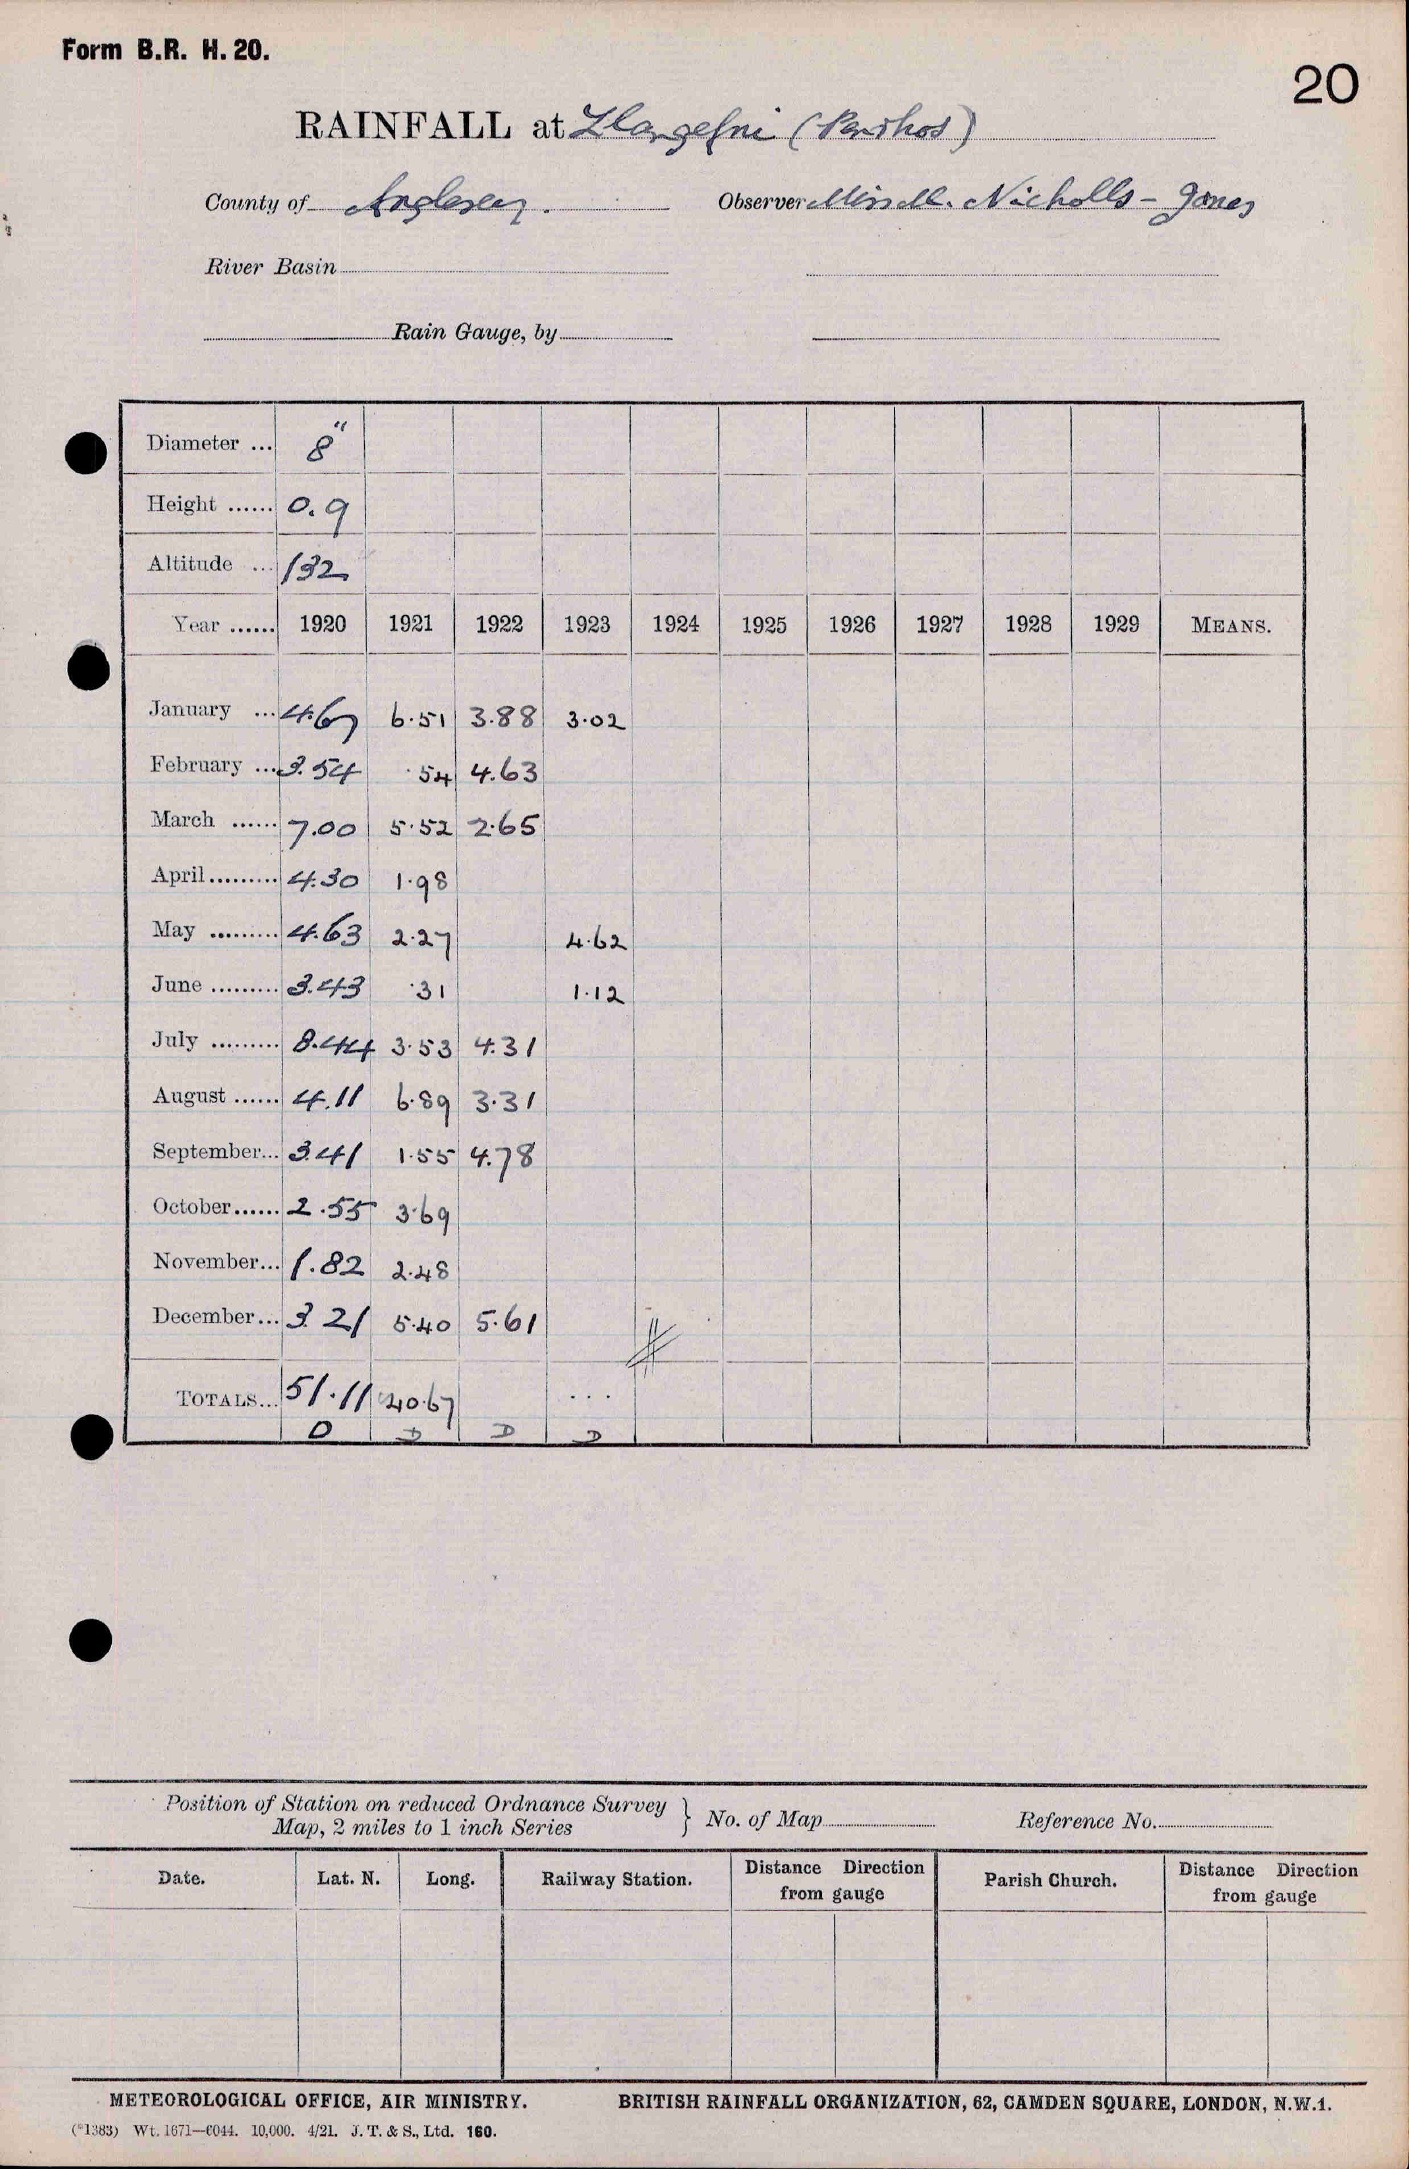 Form B.R. H. 20.
20
RAINFALL at Llangefni (Penrhos)
County of Anglesey. Observer Miss M. Nicholls-Jones
River Basin
Rain Gauge, by
Diameter ... 8"
Height ...... 0.9
Altitude ... 132
Year ...... 1920 1921 1922 1923 1924 1925 1926 1927 1928 1929 MEANS.
January ... 4.67 6.51 3.88 3.02
February ... 3.54 .54 4.63
March ...... 7.00 5.52 2.65
April ......... 4.30 1.98
May ......... 4.63 2.27 4.62
June ......... 3.43 .31 1.12
July ......... 8.44 3.53 4.31
August ...... 4.11 6.89 3.31
September... 3.41 1.55 4.78
October...... 2.55 3.69
November... 1.82 2.48
December... 3.21 5.40 5.61
TOTALS... 51.11 40.67 ...
D D D D
Position of Station on reduced Ordnance Survey
Map, 2 miles to 1 inch Series } No. of Map Reference No.
Date. Lat. N. Long. Railway Station. Distance Direction from gauge Parish Church. Distance Direction from gauge
METEOROLOGICAL OFFICE, AIR MINISTRY. BRITISH RAINFALL ORGANIZATION, 62, CAMDEN SQUARE, LONDON, N.W.1.
(*1383) Wt. 1671—6044. 10,000. 4/21. J. T. & S., Ltd. 160.